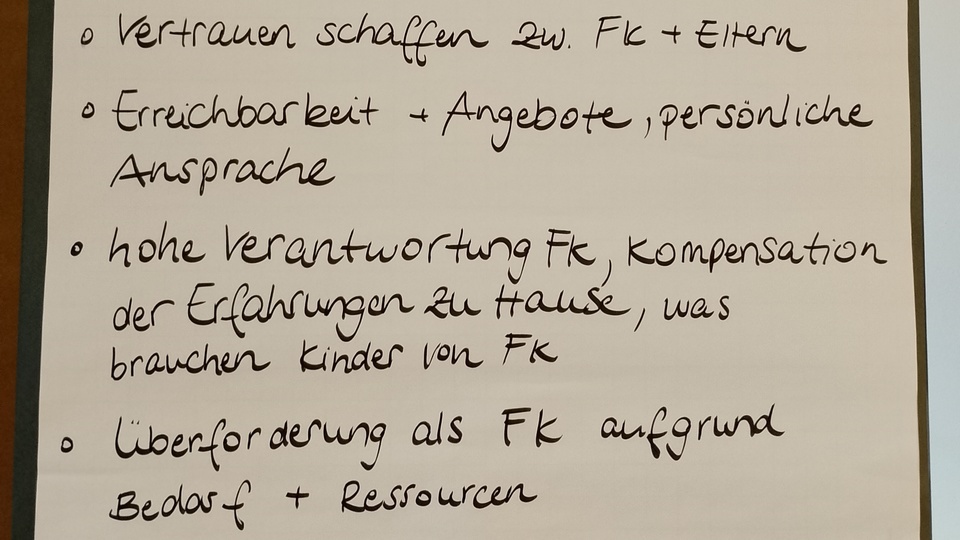 o Vertrauen schaffen zw. Fk + Eltern
o Erreichbarkeit + Angebote, persönliche
Ansprache
o hohe Verantwortung Fk, Kompensation
der Erfahrungen zu Hause, was
brauchen Kinder von Fk
o Überforderung als Fk aufgrund
Bedarf + Ressourcen